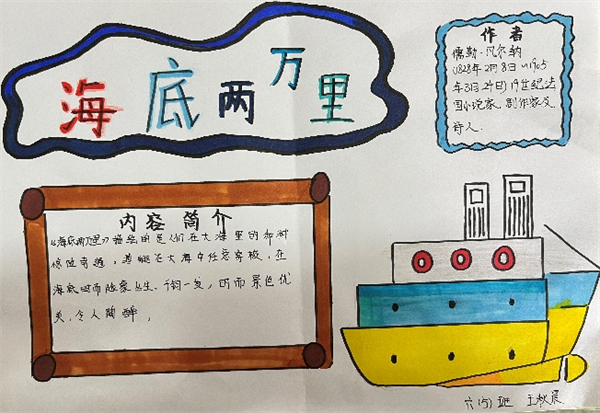 海底两万里
作者
儒勒·凡尔纳
(1828年2月8日~1905
年3月24日) 19世纪法
国小说家、剧作家及
诗人.
内容简介
《海底两万里》描绘的是人们在大海里的种种
惊险奇遇，潜艇在大海中任意穿梭，在
海底时而险象丛生、千钧一发，时而景色优
美、令人陶醉，
六(5)班 王秋晨